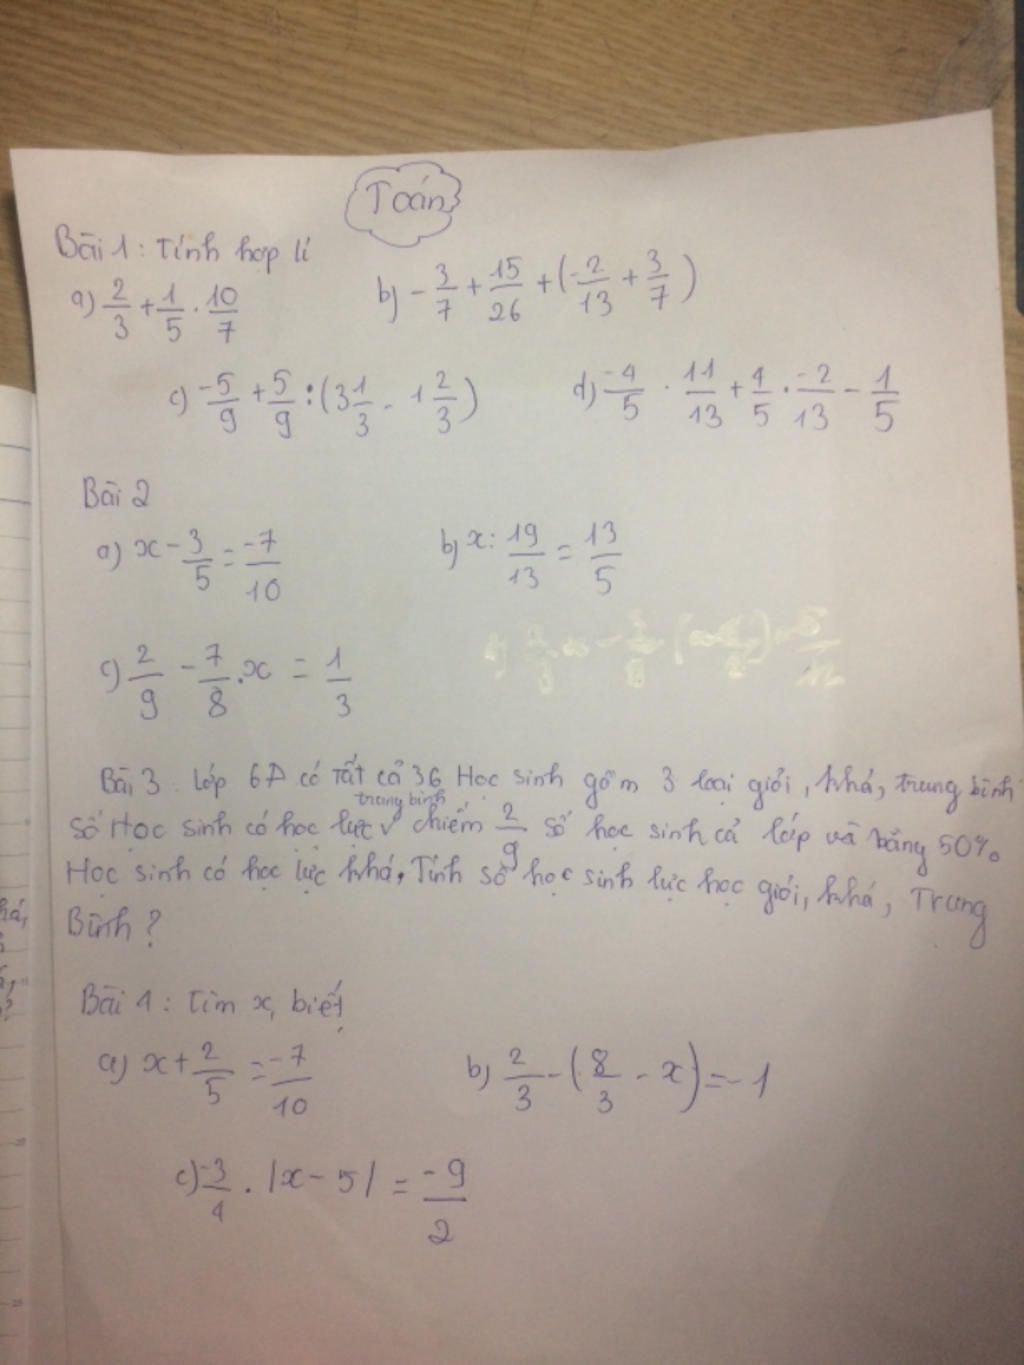 Toán
Bài 1: Tính hợp lí
a) 2/3 + 1/5 . 10/7 b) - 3/7 + 15/26 + (-2/13 + 3/7)
c) -5/9 + 5/9 : (3 1/3 - 1 2/3) d) -4/5 . 11/13 + 4/5 . -2/13 - 1/5
Bài 2
a) x - 3/5 = -7/10 b) x : 19/13 = 13/5
c) 2/9 - 7/8 . x = 1/3
Bài 3: Lớp 6A có Tất cả 36 Học sinh gồm 3 loại giỏi, khá, trung bình
trung bình
Số Học sinh có học lực ✓ chiếm 2/9 số học sinh cả lớp và bằng 50%
Học sinh có học lực khá, Tính số học sinh lực học giỏi, khá, Trung
Bình?
Bài 4: Tìm x, biết
a) x + 2/5 = -7/10 b) 2/3 - (8/3 - x) = -1
c) -3/4 . |x - 5| = -9/2